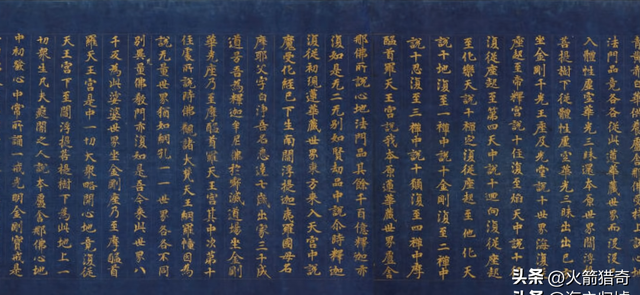 法門品竟各各從此蓮華藏世界而沒沒
入體性虛空華光三昧還本原世界閻浮
菩提樹下從體性虛空華光三昧出出已
坐金剛千光王座及光堂說十世界海復
座起至帝釋宮說十住復從座起至焰天中說十
復從座起至第四天中說十迴向復從座起
至化樂天說十禪定復從座起至他化天
說十地復至一禪中說十金剛復至二禪中
說十忍復至三禪中說十願復至四禪中摩
醯首羅天王宮說我本原蓮華藏世界盧舍
那佛所說心地法門品其餘千百億釋迦亦
復如是无二无別如賢劫品中說尒時釋迦
復從初現蓮華藏世界東方來入天宮中說
魔受化經已下生南閻浮提迦夷羅國母名
摩耶父字白淨吾名悉達七歲出家三十成
道号吾為釋迦牟尼佛於寂滅道場坐金剛
華光座乃至摩醯首羅天王宮其中次第十
住處所說時佛觀諸大梵天王網羅幢因為
說无量世界猶如網孔一一世界各各不同
別異无量佛教門亦復如是吾今來此世界八
千反為此娑婆世界坐金剛座乃至摩醯首
羅天王宮是中一切大眾略開心地竟復從
天王宮下至閻浮提菩提樹下為此地上一
切眾生凡夫癡闇之人說本盧舍那佛心地
中初發心中常所誦一戒光明金剛寶戒是
头条 @火箭猎奇